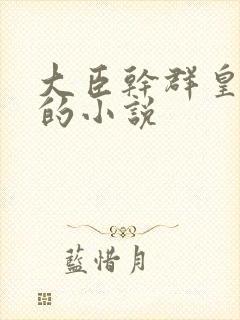 大臣幹群皇
的小説
藍惜月